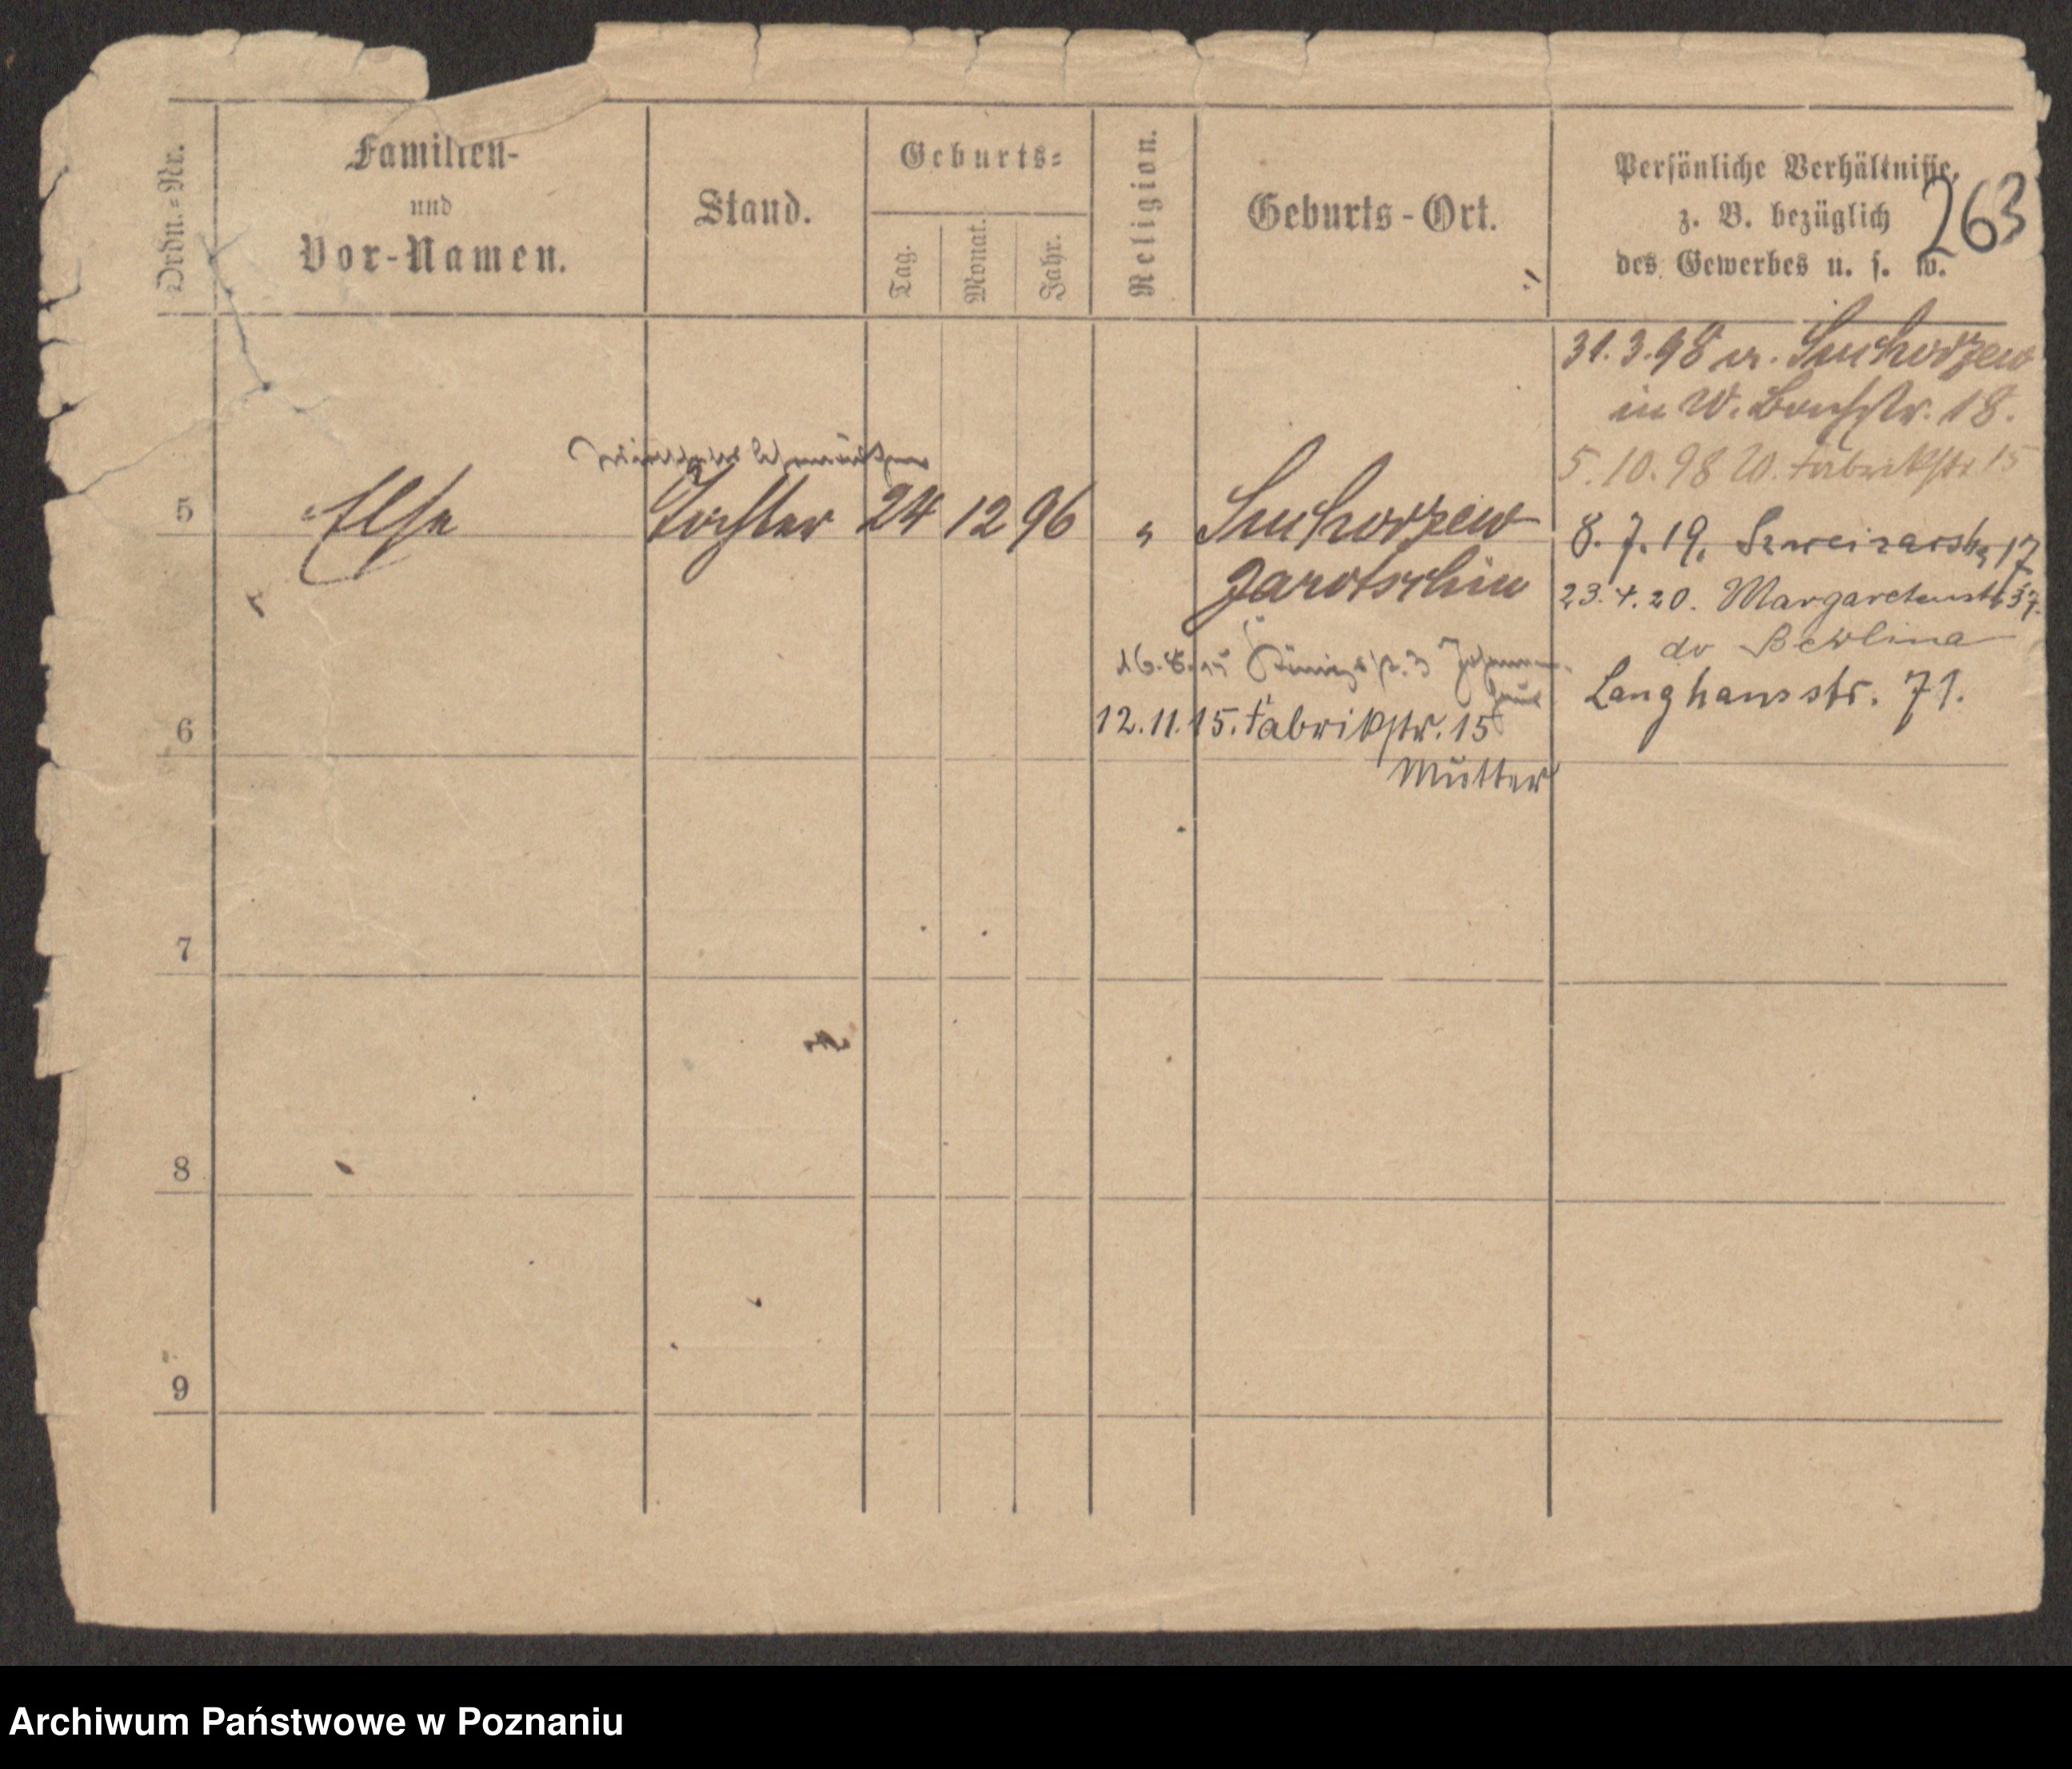 Ordn.-Nr.
Familien-
und
Vor-Namen.
Stand.
Geburts-
Tag.
Monat.
Jahr.
Religion.
Geburts-Ort.
Persönliche Verhältnisse,
z. B. bezüglich
des Gewerbes u. s. w.
263
31.3.98 v. Suchorzew
in W. 18.
5.10.98 W. Fabrikstr 15
5 Else Tochter 24 12 96 " Suchorzew
Jarotschin
8.7.19. Szweizarska 17
23.4.20. Margaretenstr 37.
do Berlina
Langhansstr. 71.
16.8.15 Königspl. 3
12.11.15. Fabrikstr. 15
Mutter
6
7
8
9
Archiwum Państwowe w Poznaniu